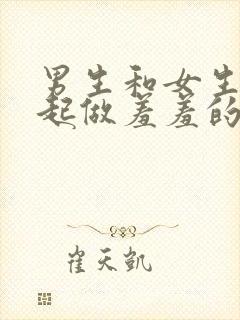 男生和女生
起做羞羞的
崔天凯